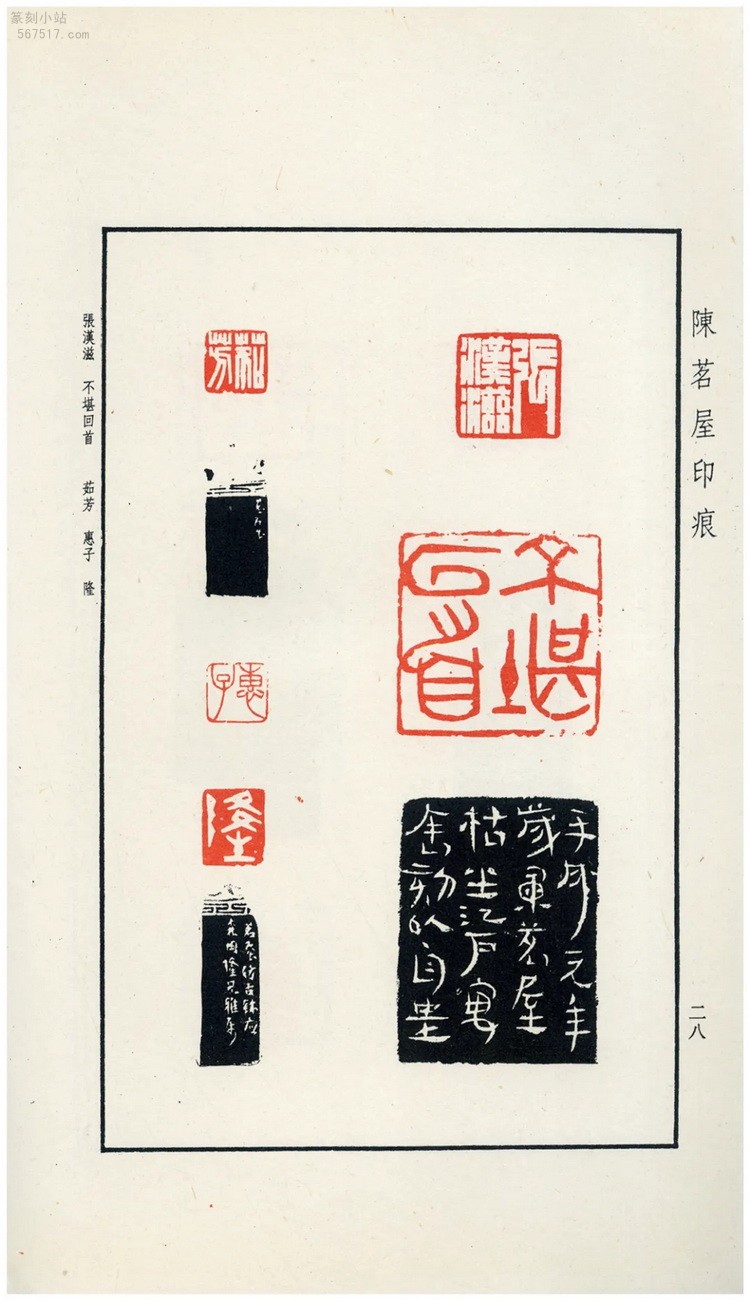 篆刻小站
567517.com
陳茗屋印痕
二八
張漢滋
不堪回首
平成元年
歲暮茗屋
枯坐江戶寓
舍刻以自
茹芳
惠子
隆
茗屋仿古鉥應
森岡隆兄雅
張漢滋 不堪回首 茹芳 惠子 隆